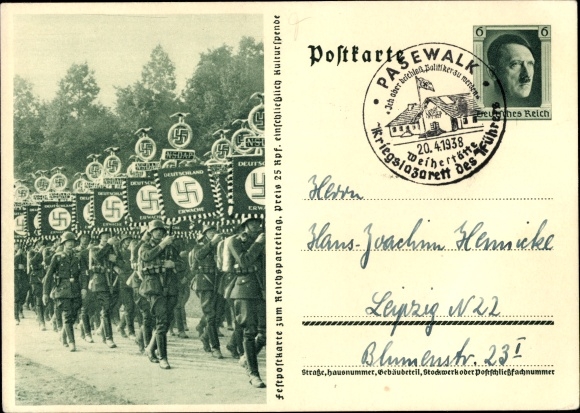 DEUTSCHLAND
ERWACHE
Festpostkarte zum Reichsparteitag, Preis 25 Rpf. einschließlich Kulturspende
Postkarte
6 6
Deutsches Reich
• PASEWALK •
"Ich aber beschloß, Politiker zu werden"
20.4.1938
Weihestätte
Kriegslazarett des Führers
Herrn
Hans-Joachim Hennicke
Leipzig N 22
Blumenstr. 23 I
Straße, Hausnummer, Gebäudeteil, Stockwerk oder Postschließfachnummer